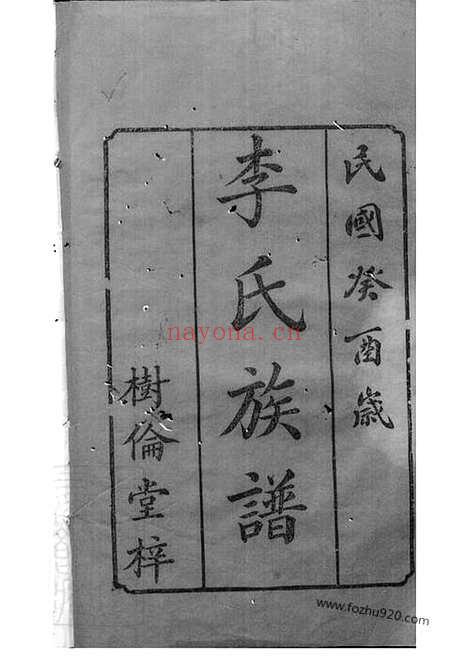 民國癸酉歲
李氏族譜
樹倫堂梓
nayona.cn
www.fozhu920.com